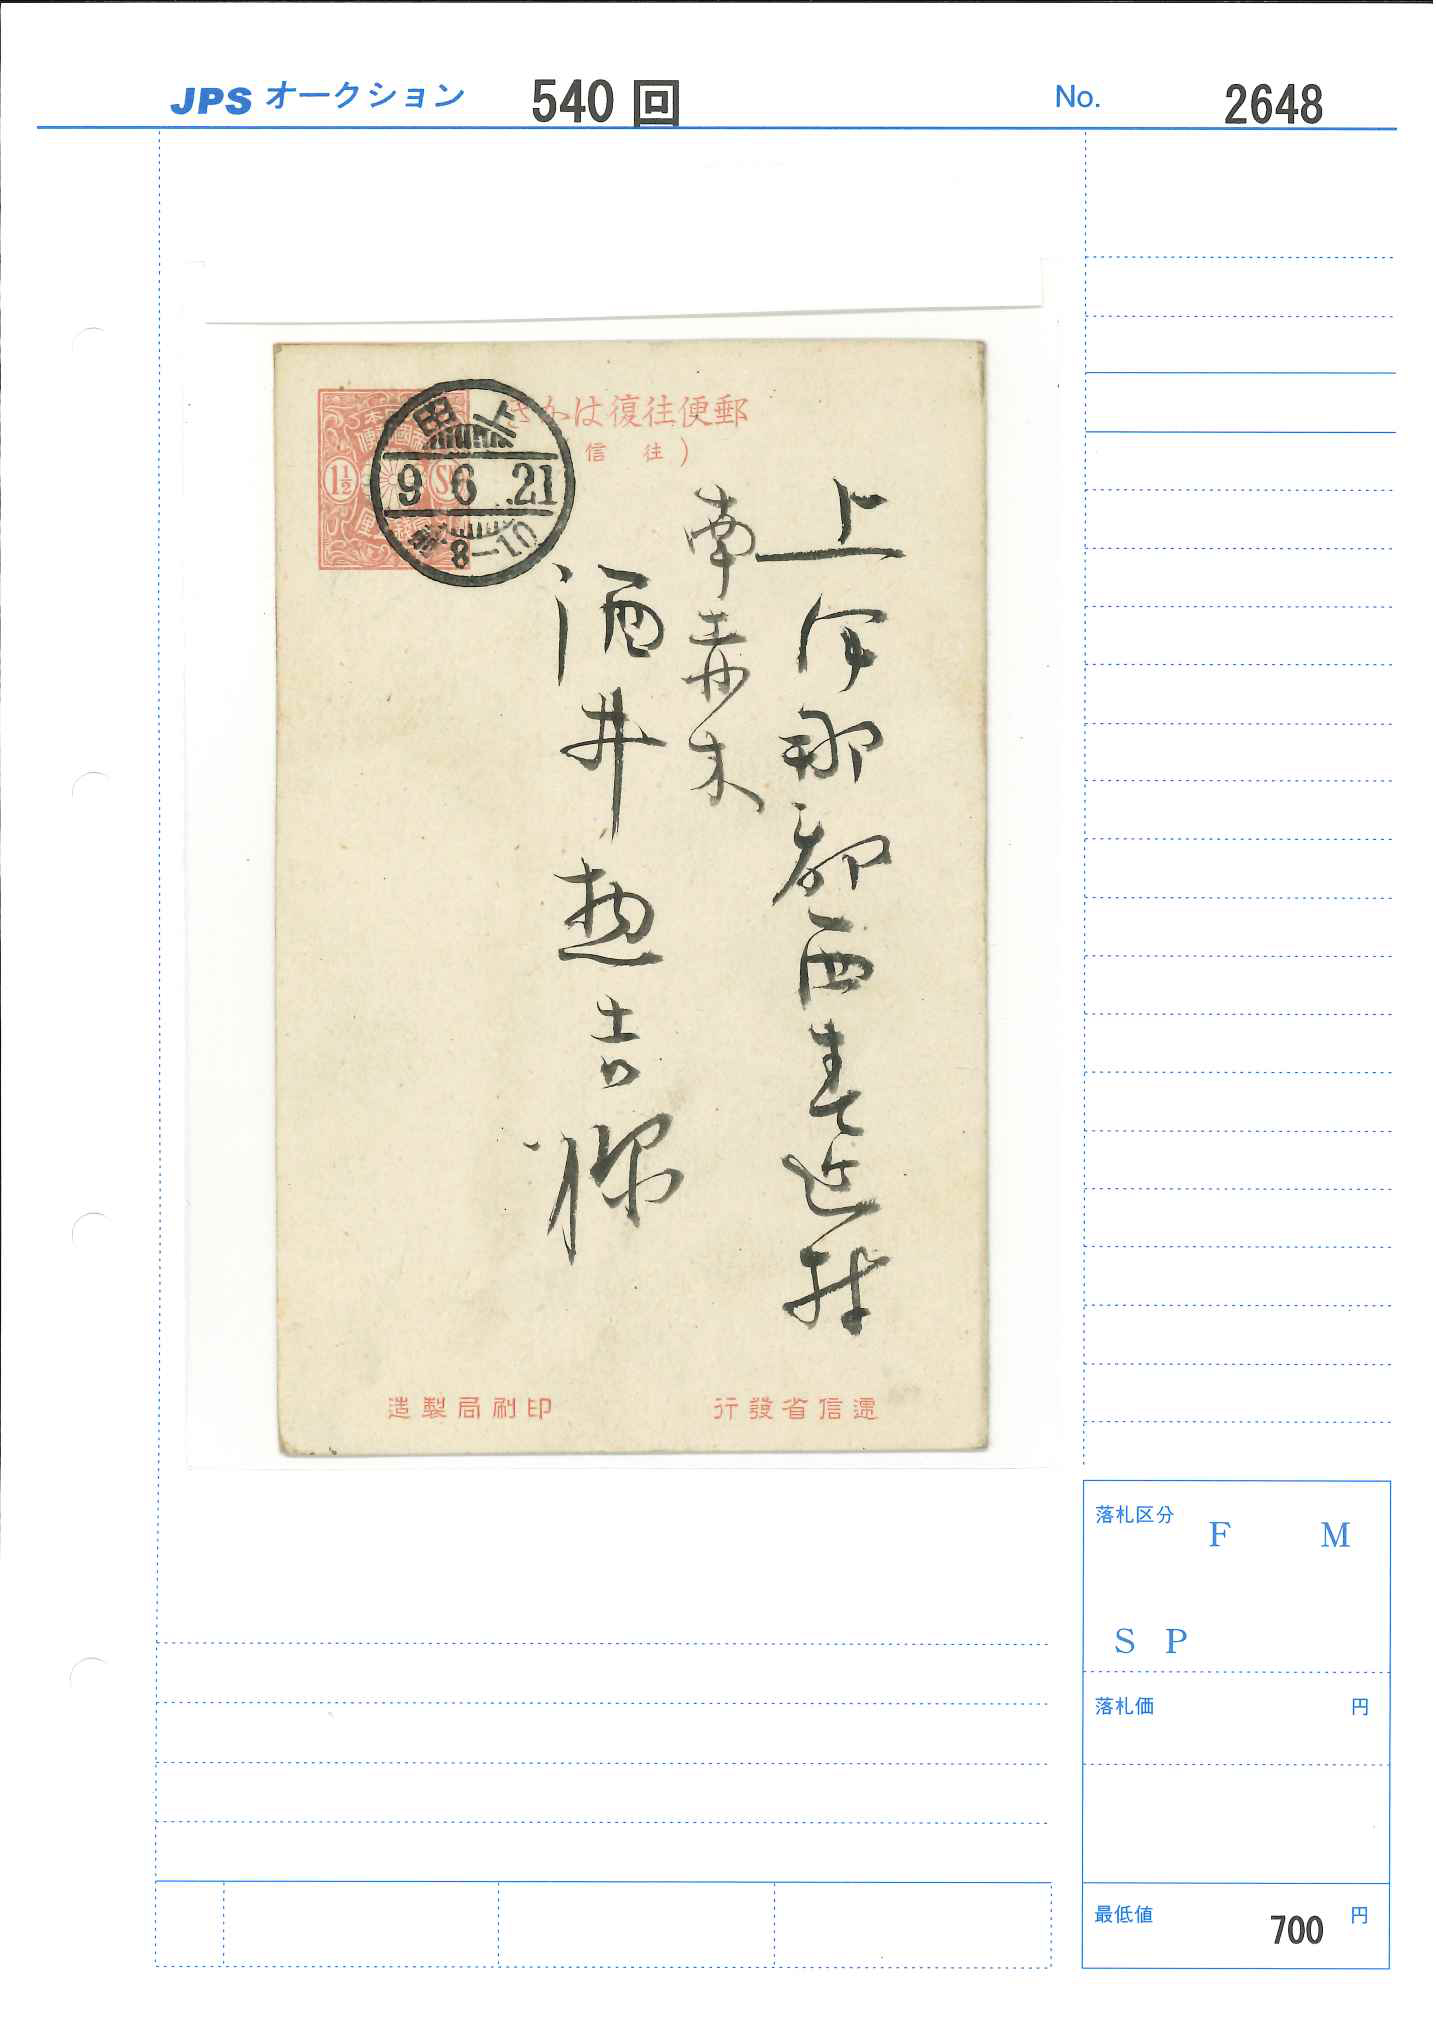 JPS オークション 540 回 No. 2648
郵便往復はかき
(往信)
1½ SN
9 6 .21
前 8-10
上伊那郡西春近村
南赤木
酒井惣吉様
逓信省發行
印刷局製造
落札区分 F M
S P
落札価 円
最低値 700 円